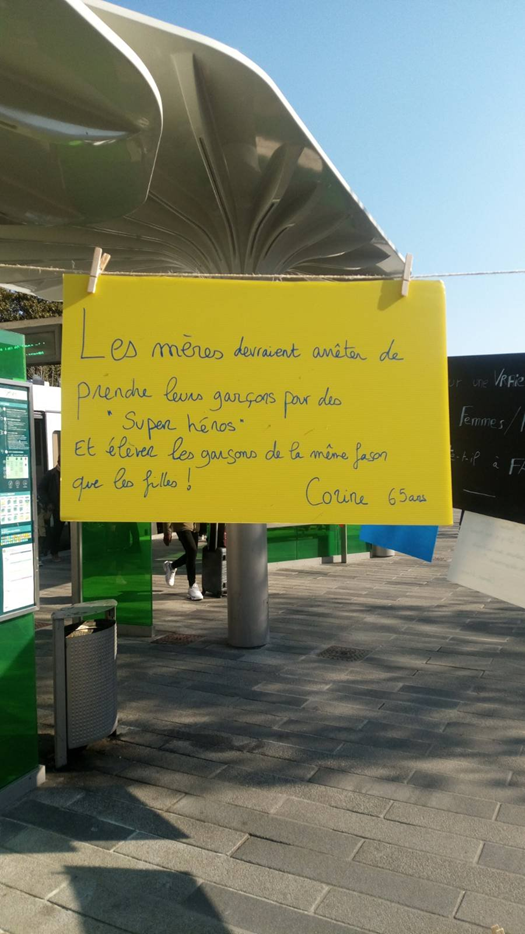 Les mères devraient arrêter de
prendre leurs garçons pour des
"Super héros"
Et élever les garçons de la même fason
que les filles !
Corine 65 ans
ur une
Femmes /